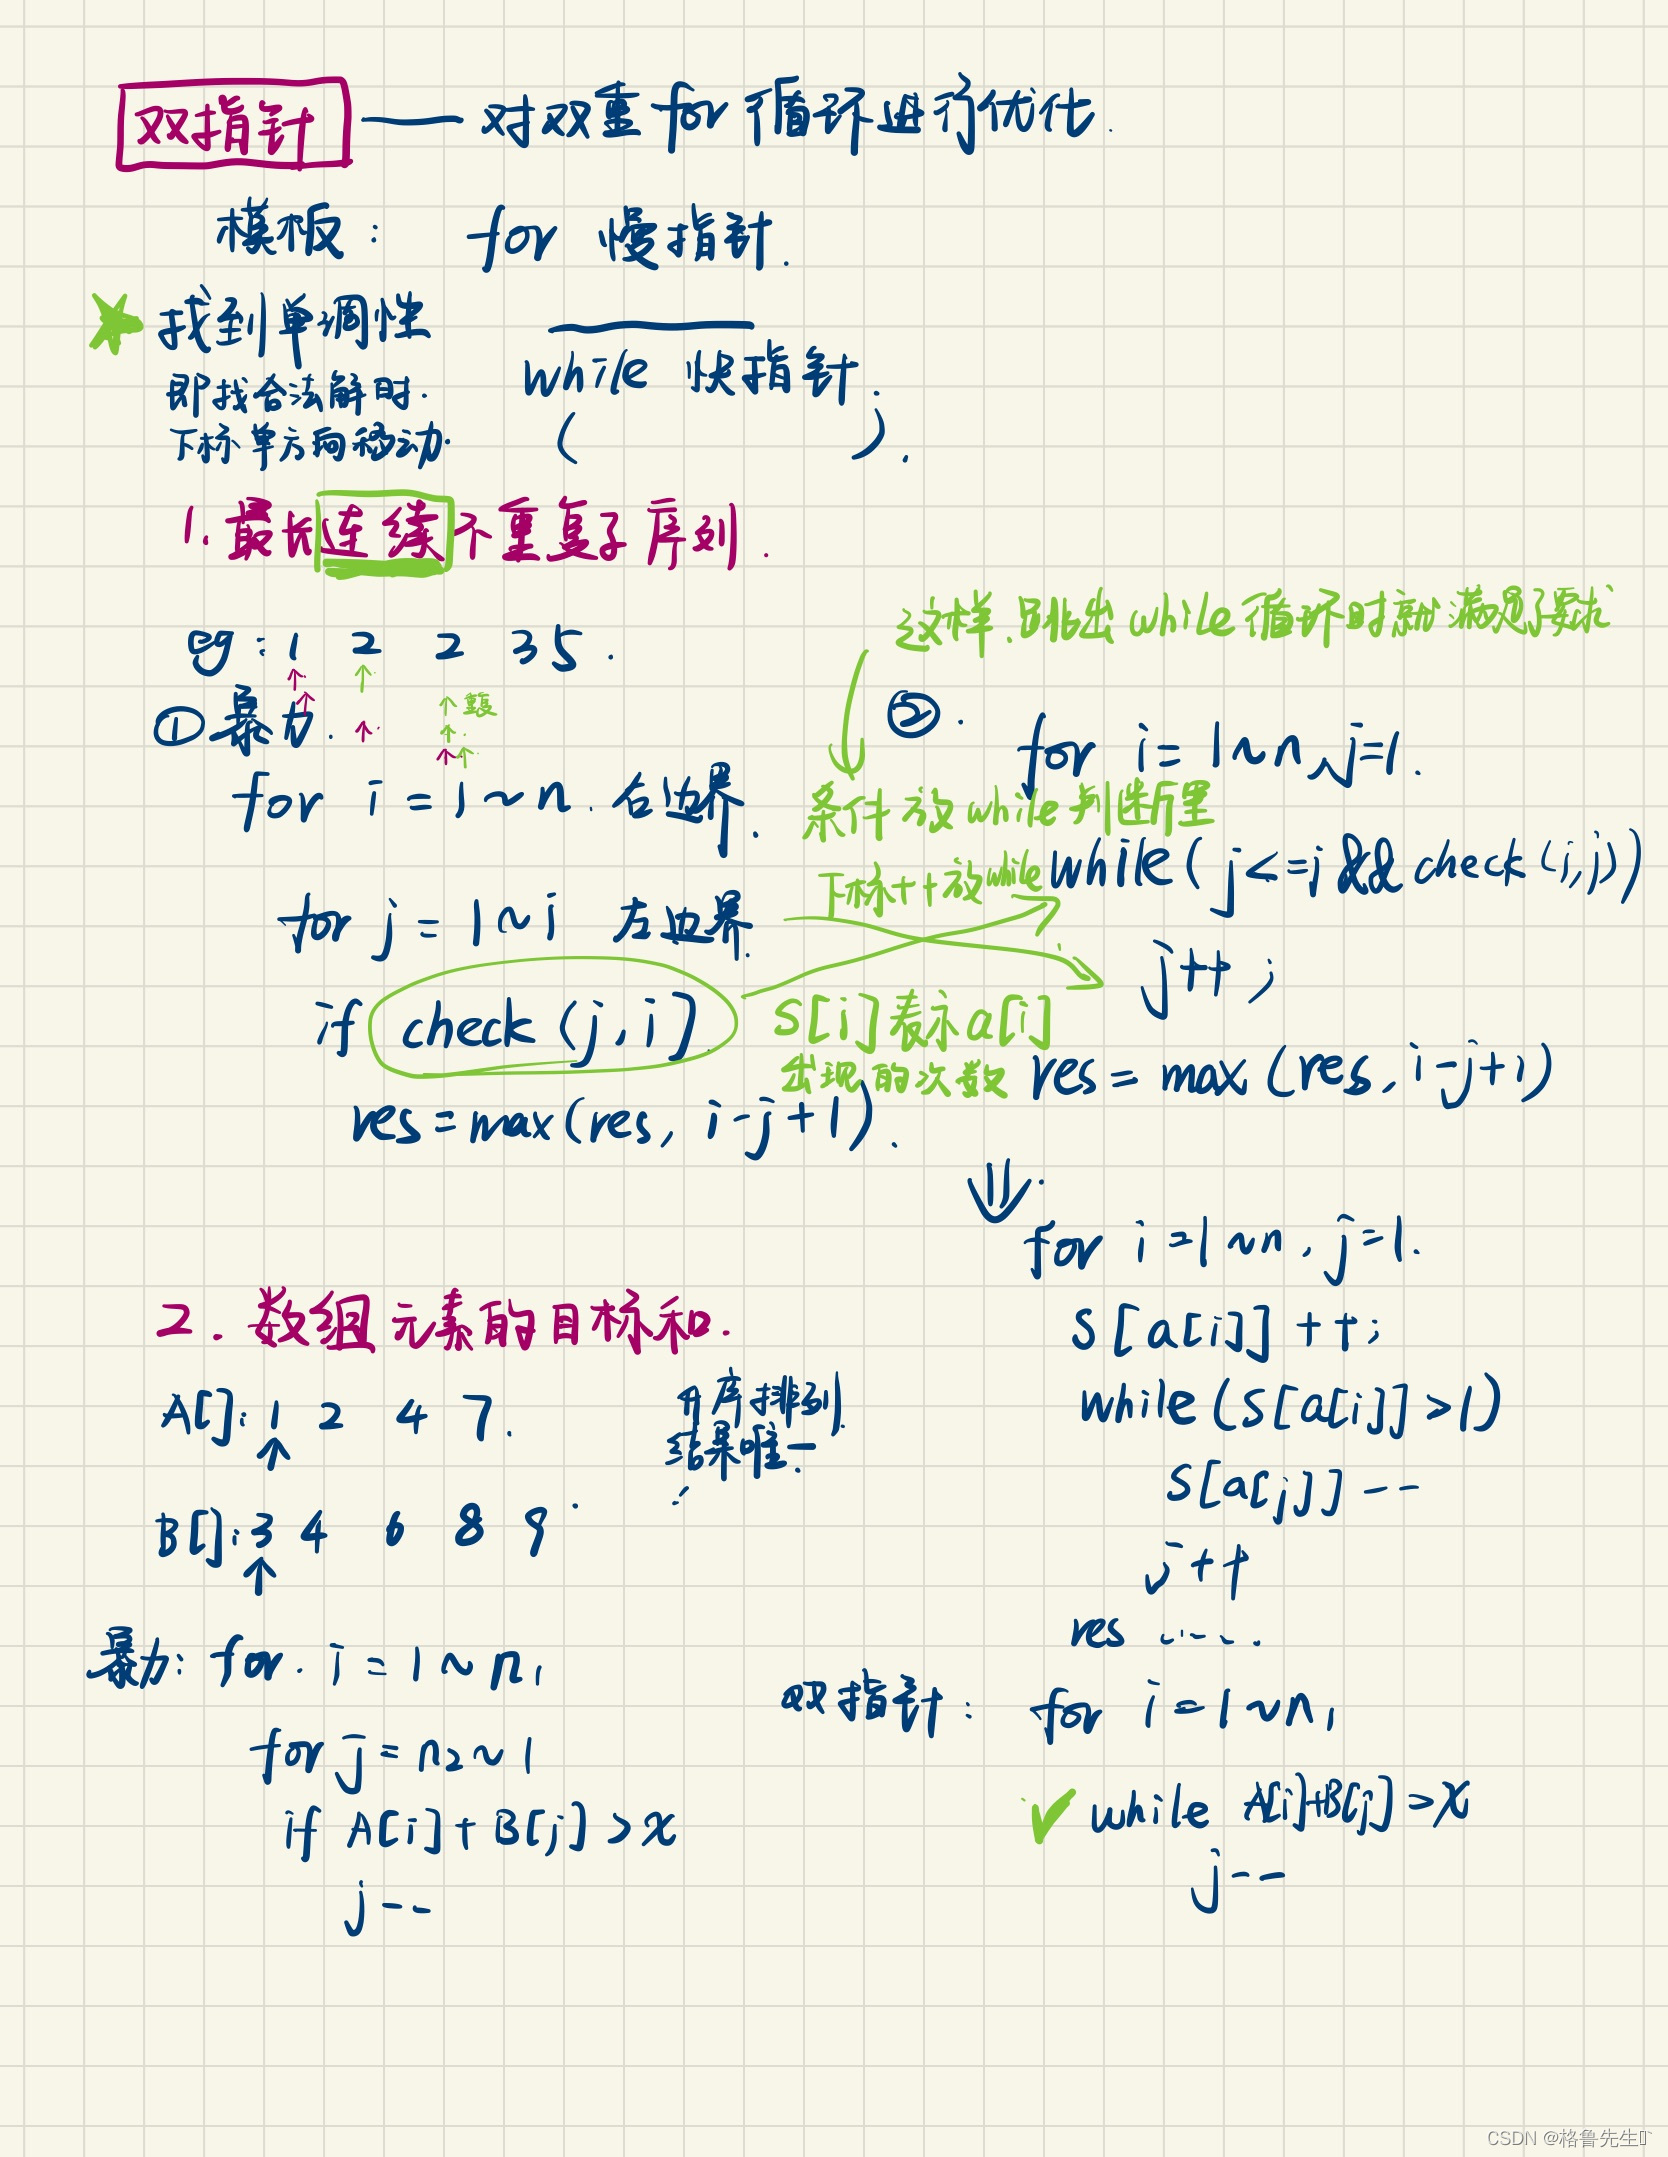 双指针 —— 对双重for循环进行优化.
模板: for 慢指针.
找到单调性
即找合法解时.
下标单方向移动.
while 快指针.
( ).
1. 最长连续不重复子序列.
eg: 1 2 2 3 5.
重复
① 暴力.
for i = 1 ~ n. 右边界.
for j = 1 ~ i 左边界.
if check (j, i)
res = max(res, i-j+1).
这样.跳出while循环时就满足了要求
条件放while判断里
下标++放while
S[i]表示a[i]
出现的次数
②.
for i = 1~n, j=1.
while(j<=i && check(i,j))
j++;
res = max(res, i-j+1)
⇓.
for i=1~n, j=1.
S[a[i]]++;
while(S[a[i]]>1)
S[a[j]]--
j++
res .....
2. 数组元素的目标和.
A[]: 1 2 4 7.
升序排列.
结果唯一.
B[]: 3 4 6 8 9
暴力: for. i = 1 ~ n₁
for j = n₂ ~ 1
if A[i] + B[j] > x
j--
双指针: for i = 1 ~ n₁
while A[i]+B[j] > x
j--
CSDN @格鲁先生